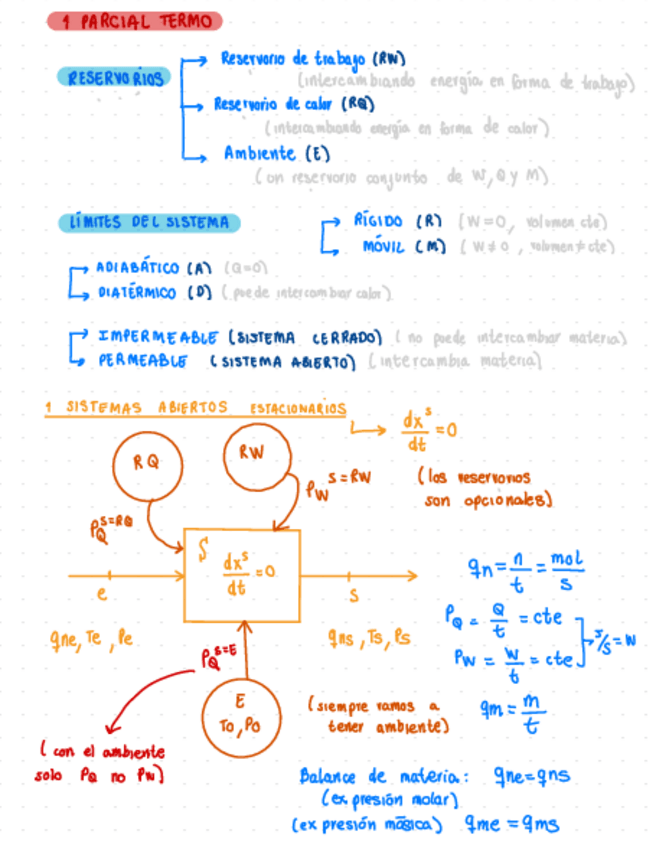 1 PARCIAL TERMO
RESERVORIOS
Reservorio de trabajo (RW)
(intercambiando energía en forma de trabajo)
Reservorio de calor (RQ)
(intercambiando energía en forma de calor)
Ambiente (E)
(un reservorio conjunto de W, Q y M)
LÍMITES DEL SISTEMA
RÍGIDO (R) (W=0, volumen cte)
MÓVIL (M) (W≠0, volumen≠cte)
ADIABÁTICO (A) (Q=0)
DIATÉRMICO (D) (puede intercambiar calor)
IMPERMEABLE (SISTEMA CERRADO) (no puede intercambiar materia)
PERMEABLE (SISTEMA ABIERTO) (intercambia materia)
1 SISTEMAS ABIERTOS ESTACIONARIOS
dx^s/dt = 0
RQ
RW
P_W^S=RW
(los reservorios
son opcionales)
P_Q^S=RQ
S
dx^s/dt = 0
e
s
qne, Te, Pe
qns, Ts, Ps
qn = n/t = mol/s
P_Q = Q/t = cte
J/s = W
P_W = W/t = cte
qm = m/t
P_Q^S=E
E
To, Po
(siempre vamos a
tener ambiente)
(con el ambiente
solo P_Q no P_W)
Balance de materia: qne=qns
(expresión molar)
(expresión másica) qme = qms